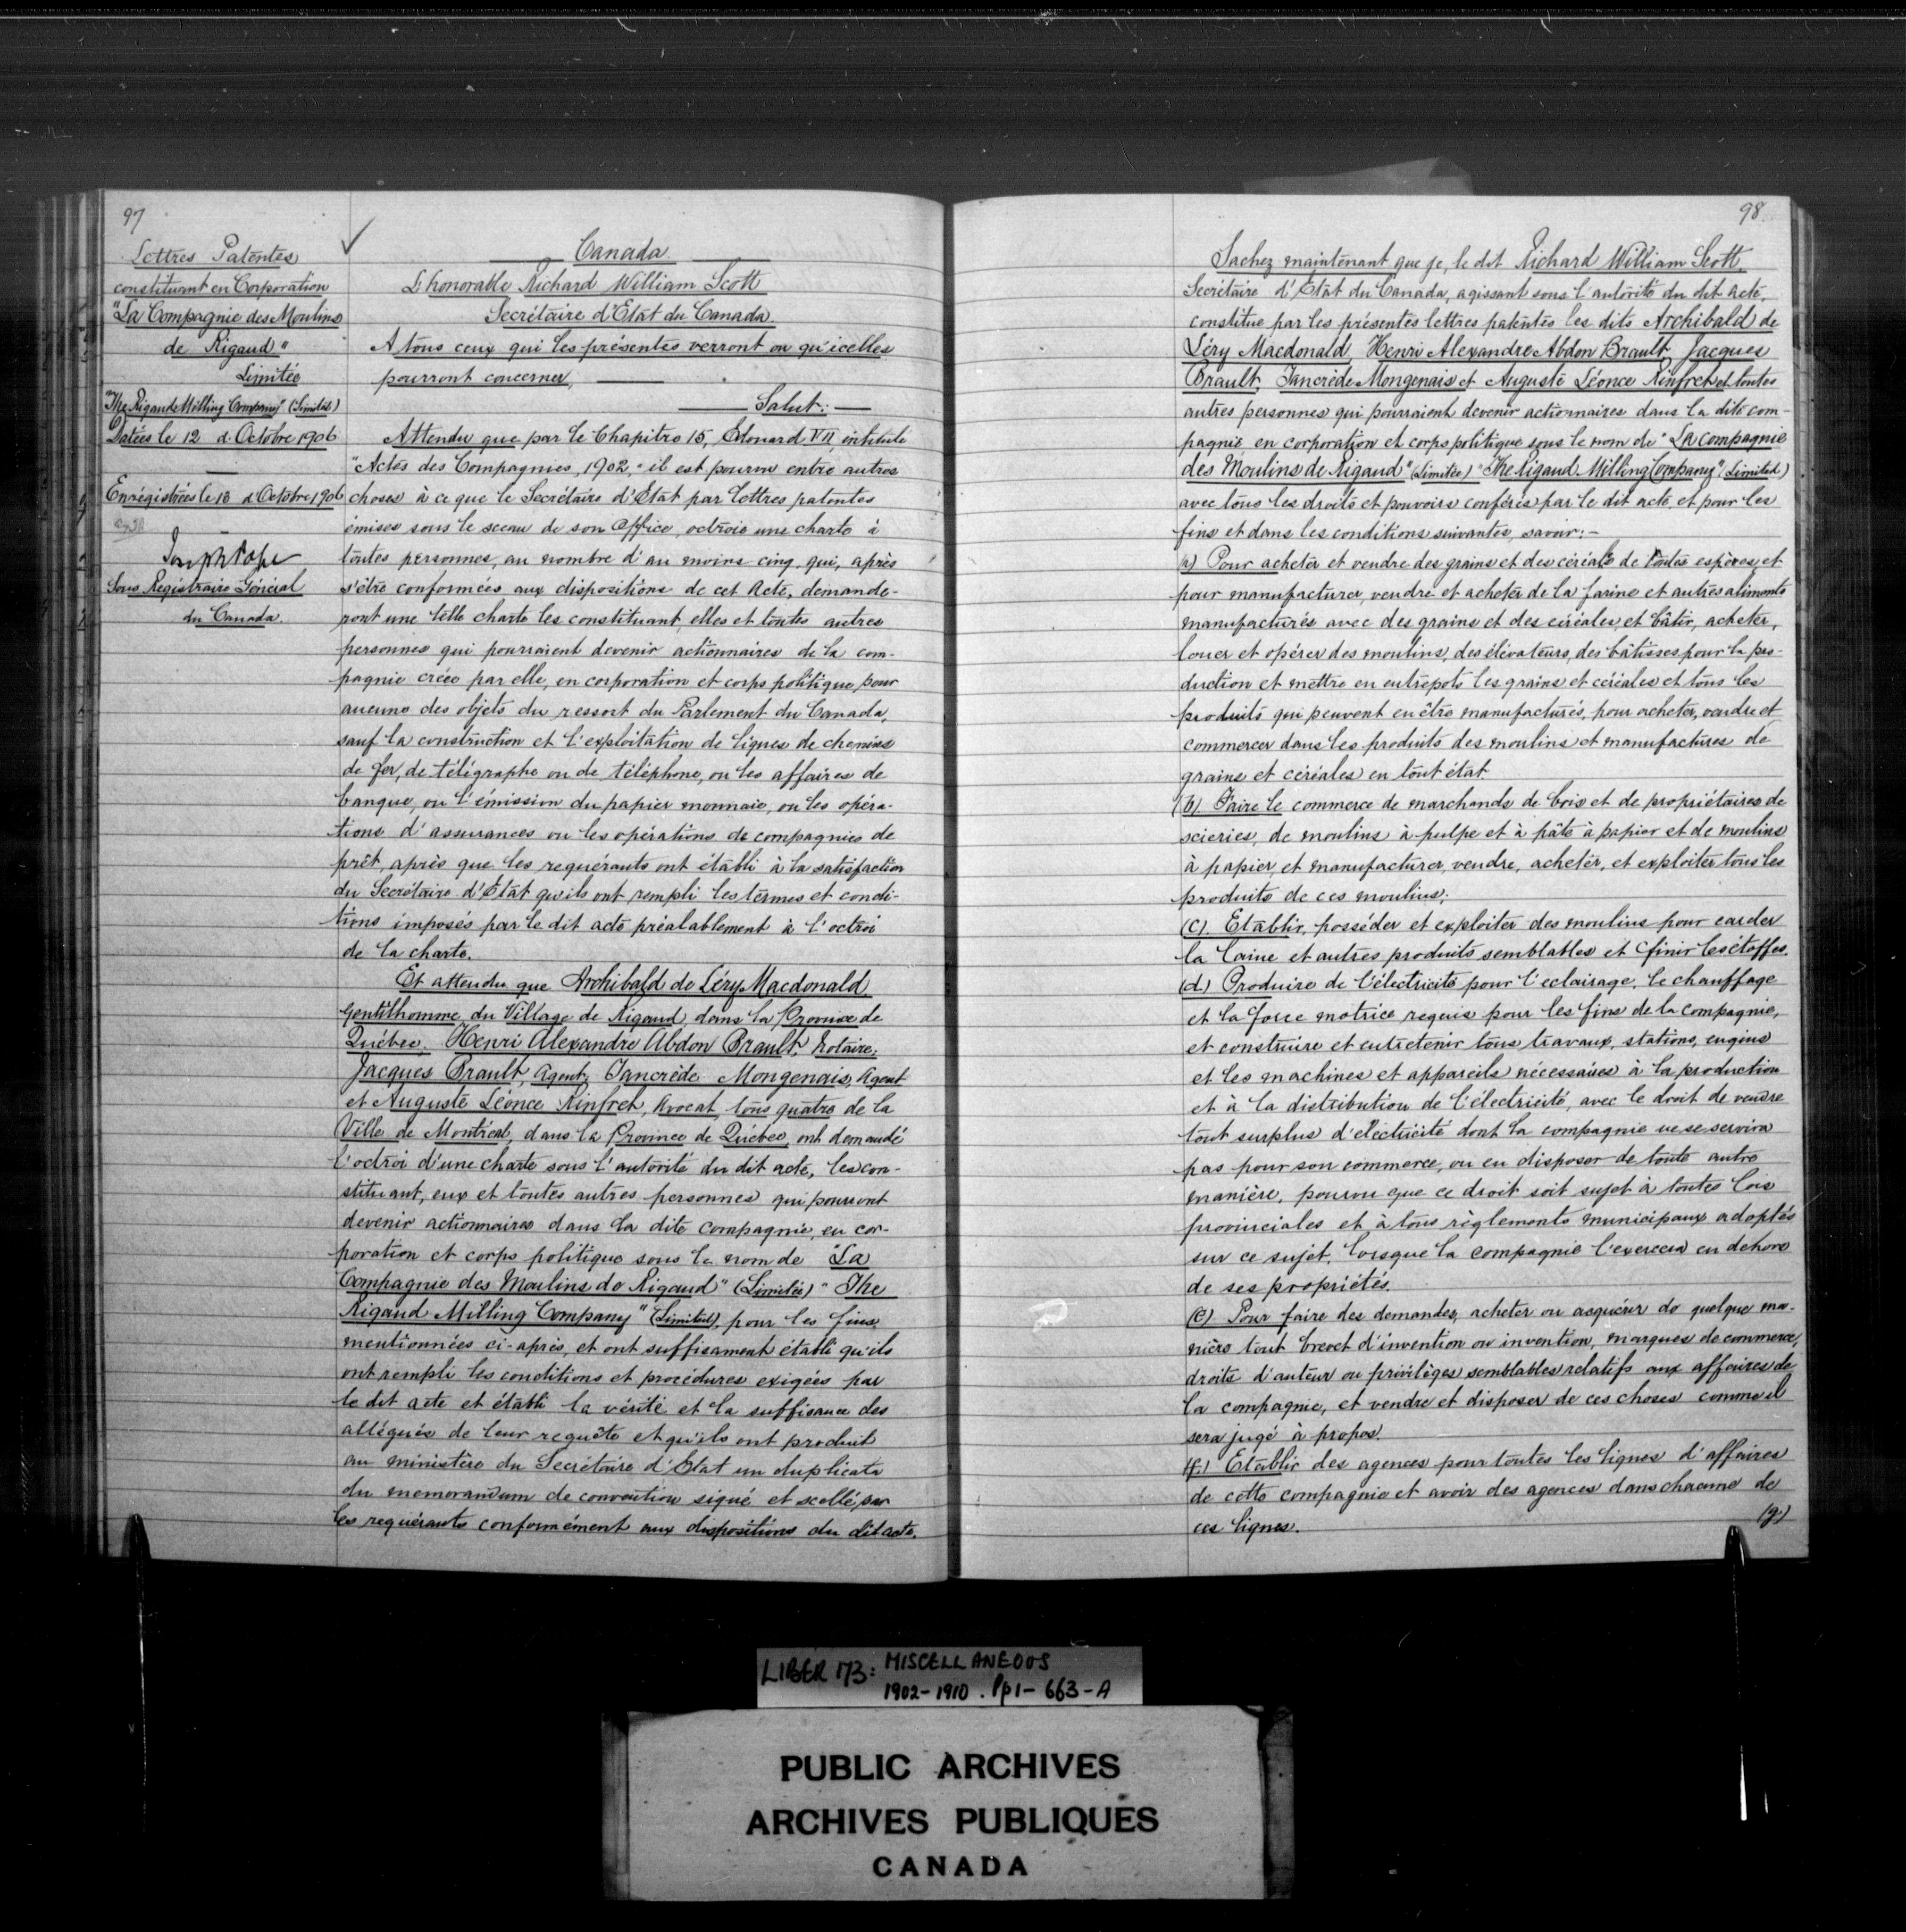 97
Lettres Patentes
constituant en Corporation
"La Compagnie des Moulins
de Rigaud"
Limitée
"The Rigaud Milling Company" (Limited)
Datées le 12 d. Octobre 1906
Enrégistrées le 18 d'Octobre 1906
Sous Registraire Général
du Canada.
Canada
L'honorable Richard William Scott
Secrétaire d'Etat du Canada.
A tous ceux qui les présentes verront ou qu'icelles
pourront concerner,
Salut:
Attendu que par le Chapitre 15, Edouard VII, intitulé
"Actes des Compagnies, 1902" il est pourvu entre autres
choses à ce que le Secrétaire d'Etat par lettres patentes
émises sous le sceau de son Office, octroie une charte à
toutes personnes, au nombre d'au moins cinq qui, après
s'être conformées aux dispositions de cet Acte, demande-
ront une telle charte les constituant, elles et toutes autres
personnes qui pourraient devenir actionnaires de la com-
pagnie créée par elle, en corporation et corps politique, pour
aucuns des objets du ressort du Parlement du Canada,
sauf la construction et l'exploitation de lignes de chemins
de fer, de télégraphe ou de téléphone, ou les affaires de
banque, ou l'émission du papier monnaie, ou les opéra-
tions d'assurances ou les opérations de compagnies de
prêt, après que les requérants ont établi à la satisfaction
du Secrétaire d'Etat qu'ils ont rempli les termes et condi-
tions imposés par le dit acte préalablement à l'octroi
de la charte.
Et attendu que Archibald de Léry Macdonald,
Gentilhomme du Village de Rigaud, dans la Province de
Québec, Henri Alexandre Abdon Brault, Notaire;
Jacques Brault, Agent, Tancrède Mongenais, Agent
et Auguste Léonce Rinfret, Avocat tous quatre de la
Ville de Montréal, dans la Province de Québec, ont demandé
l'octroi d'une charte sous l'autorité du dit acte, les con-
stituant, eux et toutes autres personnes qui pourront
devenir actionnaires dans la dite compagnie, en cor-
poration et corps politique sous le nom de "La
Compagnie des Moulins de Rigaud" (Limitée) "The
Rigaud Milling Company" (Limited), pour les fins
mentionnées ci-après, et ont suffisament établi qu'ils
ont rempli les conditions et procédures exigées par
le dit acte et établi la vérité et la suffisance des
allégués de leur requête et qu'ils ont produit
au ministère du Secrétaire d'Etat un duplicata
du memorandum de convention signé et scellé, par
les requérants conformément aux dispositions du dit acte.
98
Sachez maintenant que je, le dit Richard William Scott,
Secrétaire d'Etat du Canada, agissant sous l'autorité du dit acte,
constitue par les présentes lettres patentes les dits Archibald de
Léry Macdonald, Henri Alexandre Abdon Brault, Jacques
Brault, Tancrède Mongenais et Auguste Léonce Rinfret et toutes
autres personnes qui pourraient devenir actionnaires dans la dite com-
pagnie en corporation et corps politique sous le nom de "La compagnie
des Moulins de Rigaud" (Limitée) "The Rigaud Milling Company", (Limited)
avec tous les droits et pouvoirs conférés par le dit acte, et pour les
fins et dans les conditions suivantes, savoir:-
a) Pour acheter et vendre des grains et des céréales de toutes espèces, et
pour manufacturer, vendre et acheter de la farine et autres aliments
manufacturés avec des grains et des céréales et bâtir, acheter,
louer et opérer des moulins, des élévateurs, des bâtisses pour la pro-
duction et mettre en entrepots les grains et céréales et tous les
produits qui peuvent en être manufacturés, pour acheter, vendre et
commercer dans les produits des moulins et manufactures de
grains et céréales en tout état
(b) Faire le commerce de marchands de bois et de propriétaires de
scieries, de moulins à pulpe et à pâte à papier et de moulins
à papier et manufacturer, vendre, acheter, et exploiter tous les
produits de ces moulins;
(c). Etablir, posséder et exploiter des moulins pour carder
la laine et autres produits semblables et finir les étoffes.
(d) Produire de l'électricité pour l'eclairage, le chauffage
et la force motrice requis pour les fins de la compagnie,
et construire et entretenir tous travaux, stations, engins
et les machines et appareils nécessaires à la production
et à la distribution de l'électricité, avec le droit de vendre
tout surplus d'électricité dont la compagnie ne se servira
pas pour son commerce, ou en disposer de toute autre
manière, pourvu que ce droit soit sujet à toutes lois
provinciales et à tous règlements municipaux adoptés
sur ce sujet, lorsque la compagnie l'exercera en dehors
de ses propriétés.
(e) Pour faire des demandes, acheter ou acquérir de quelque ma-
nière tout brevet d'invention ou invention, marques de commerce,
droits d'auteur ou privilèges semblables relatifs aux affaires de
la compagnie, et vendre et disposer de ces choses comme il
sera jugé à propos.
(f.) Etablir des agences pour toutes les lignes d'affaires
de cette compagnie et avoir des agences dans chacune de
ces lignes.
(g)
LIBER 173: MISCELLANEOUS
1902-1910. Pp 1-663-A
PUBLIC ARCHIVES
ARCHIVES PUBLIQUES
CANADA